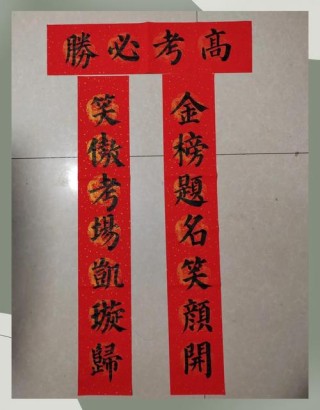 高考必勝
金榜題名笑顏開
笑傲考場凱璇歸